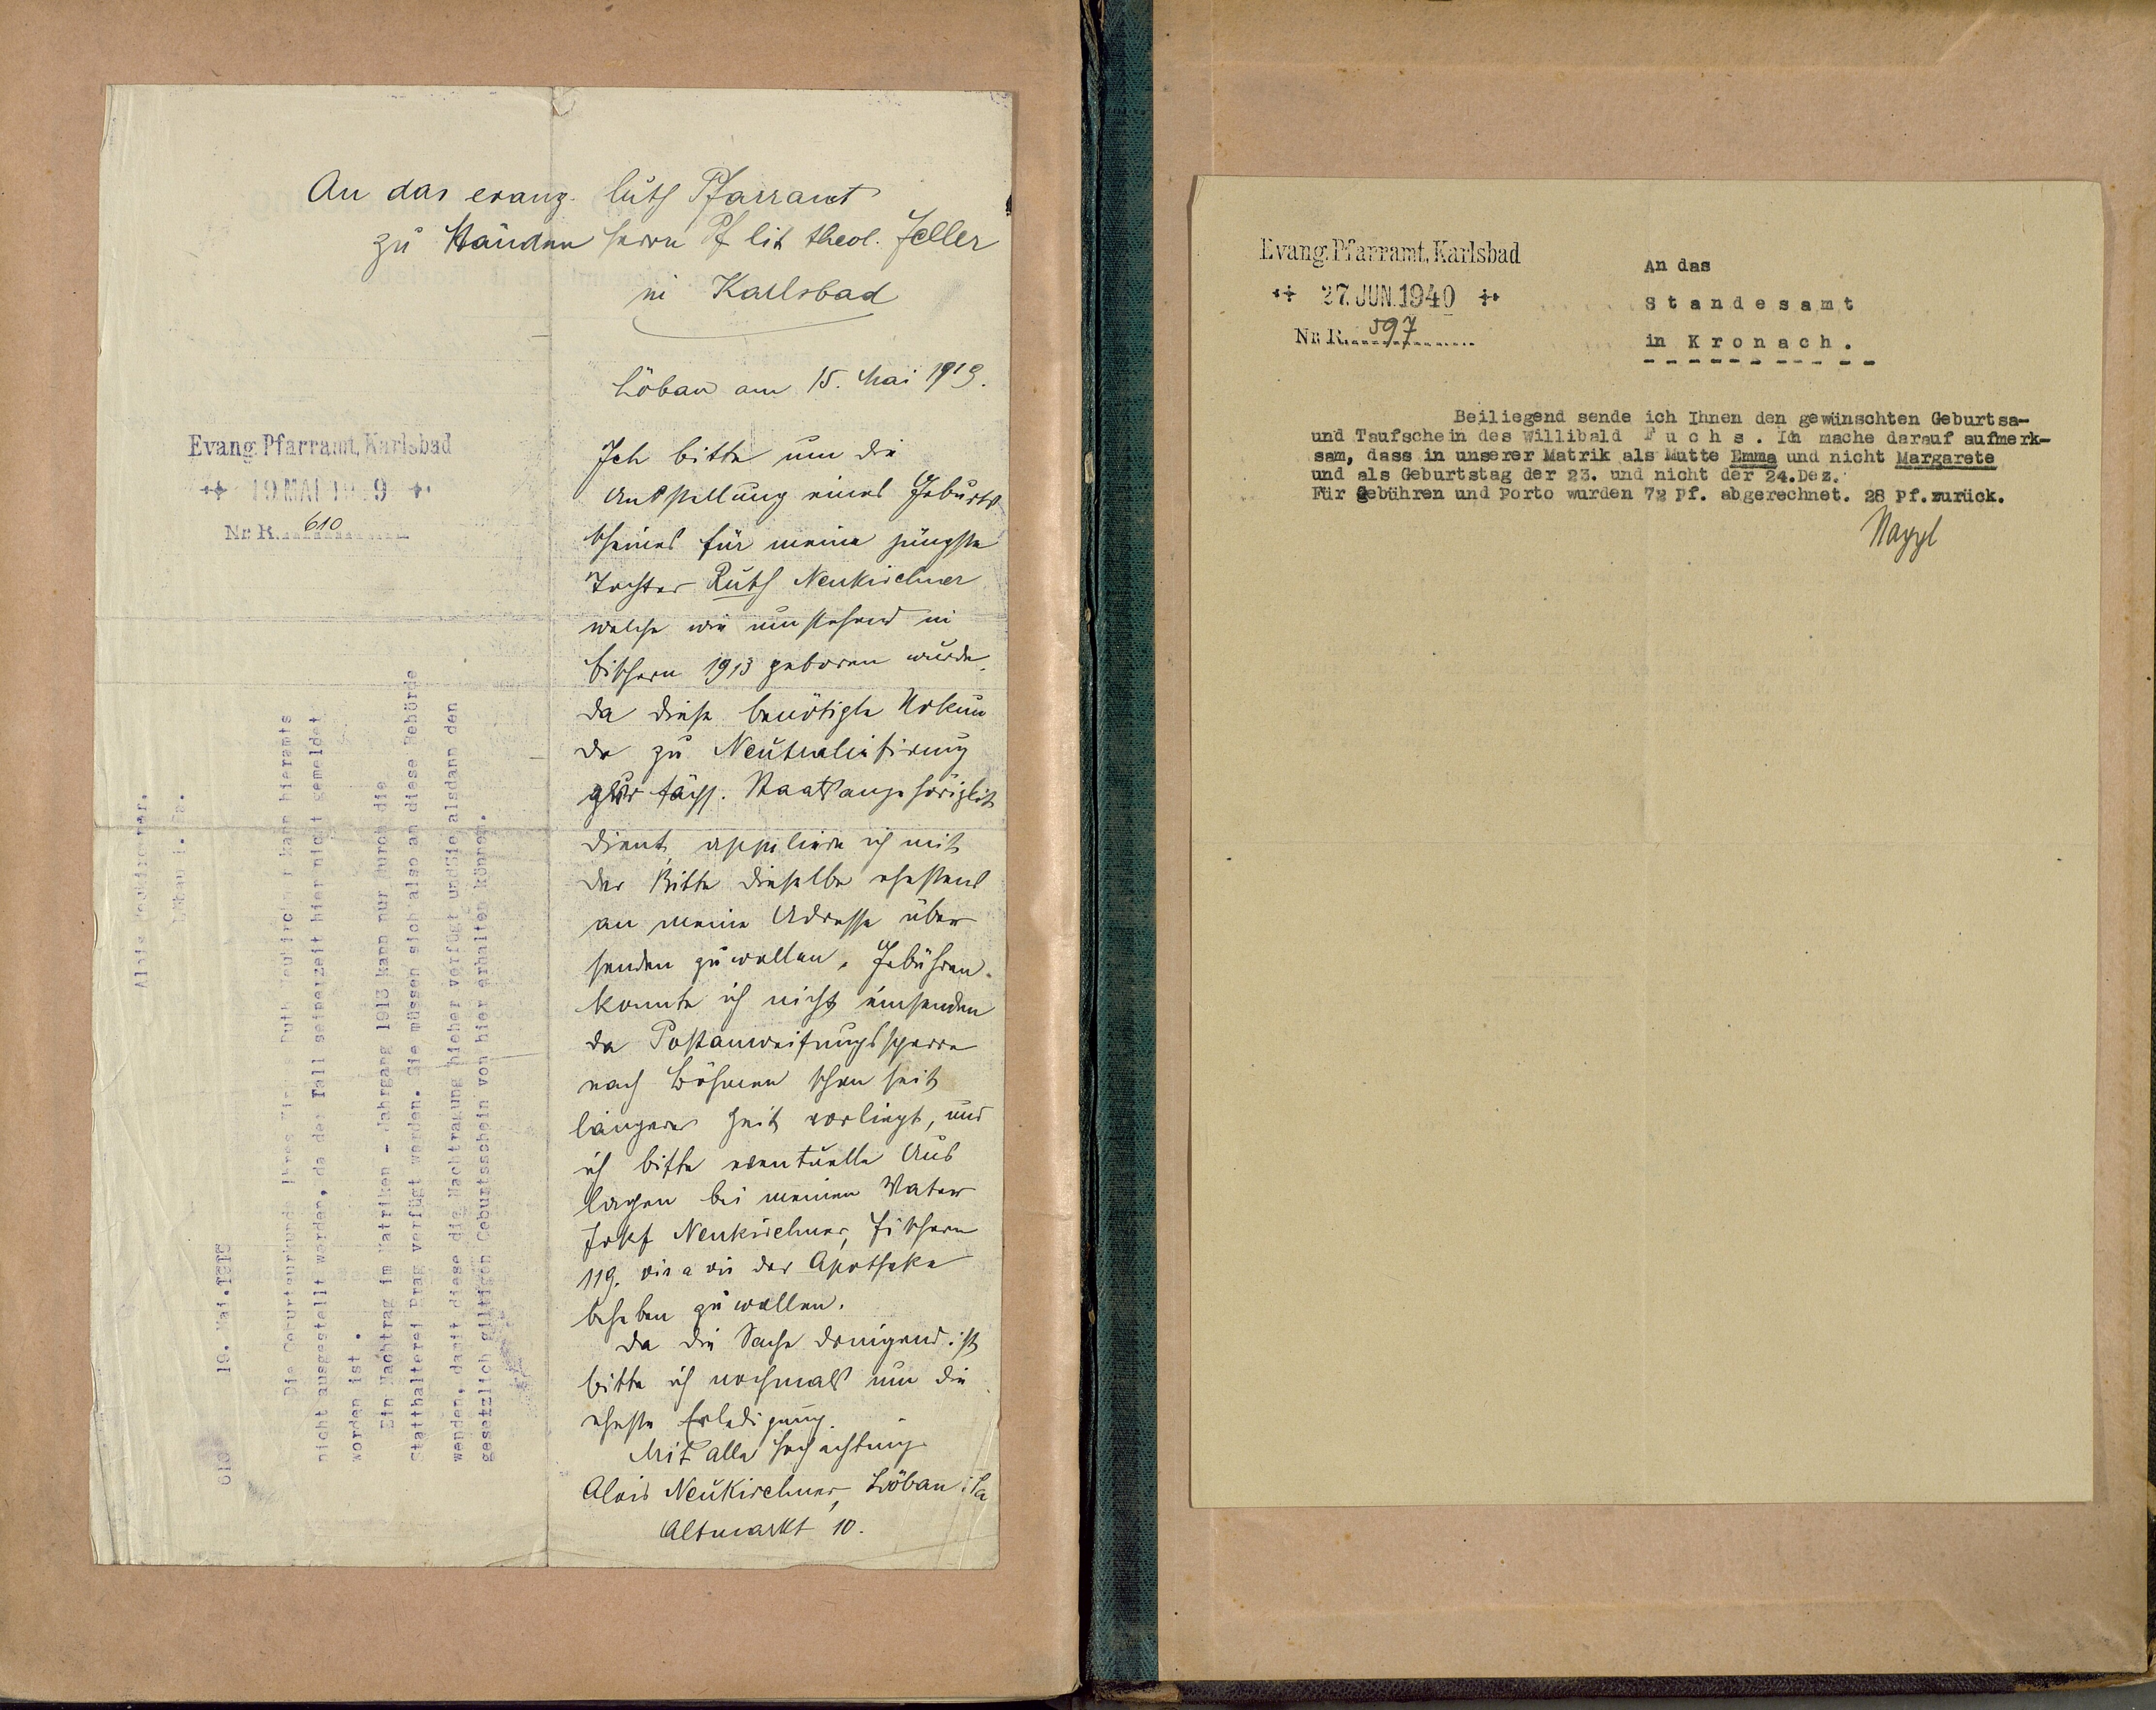 An das evang. luth Pfarramt
zu Händen Herrn Pf lit theol. Zeller
in Karlsbad
Löbau am 15. Mai 1919.
Evang. Pfarramt, Karlsbad
19 MAI 1919
Nr. R. 610
Ich bitte um die
Ausstellung eines Geburts
scheines für meine jüngste
Tochter Ruth Neukirchner
welche wie umstehend in
Fischern 1913 geboren wurde,
da diese benötigte Urkun
de zu Neutralisirung
zur sächs. Staatsangehörigkit
dient, appeliere ich mit
der Bitte dieselbe ehestens
an meine Adresse über
senden zu wollen, Gebühren
konnte ich nicht einsenden
da Postanweisungssperre
nach Böhmen schon seit
längerer Zeit vorliegt, und
ich bitte eventuelle Aus
lagen bei meinen Vater
Josef Neukirchner, Fischern
119. vis a vis der Apotheke
beheben zu wollen.
Da die Sache dringend ist
bitte ich nochmals um die
eheste Erledigung.
Mit aller Hochachtung
Alois Neukirchner, Löbau i. Sa
Altmarkt 10.
Alois Neukirchner,
Löbau i. Sa.
610 19. Mai. 1919
Die Geburtsurkunde Ihres Kindes Ruth Neukirchner kann hieramts
nicht ausgestellt werden, da der Fall seinerzeit hier nicht gemeldet
worden ist.
Ein Nachtrag im Matriken - Jahrgang 1913 kann nur durch die
Statthalterei Prag verfügt werden. Sie müssen sich also an diese Behörde
wenden, damit diese die Nachtragung hieher verfügt und Sie alsdann den
gesetzlich giltigen Geburtsschein von hier erhalten können.
Evang. Pfarramt, Karlsbad
27. JUN. 1940
Nr. R. 597
An das
Standesamt
in Kronach.
Beiliegend sende ich Ihnen den gewünschten Geburtsa-
und Taufschein des Willibald Fuchs. Ich mache darauf aufmerk-
sam, dass in unserer Matrik als Mutte Emma und nicht Margarete
und als Geburtstag der 23. und nicht der 24.Dez.
Für Gebühren und Porto wurden 72 Pf. abgerechnet. 28 Pf. zurück.